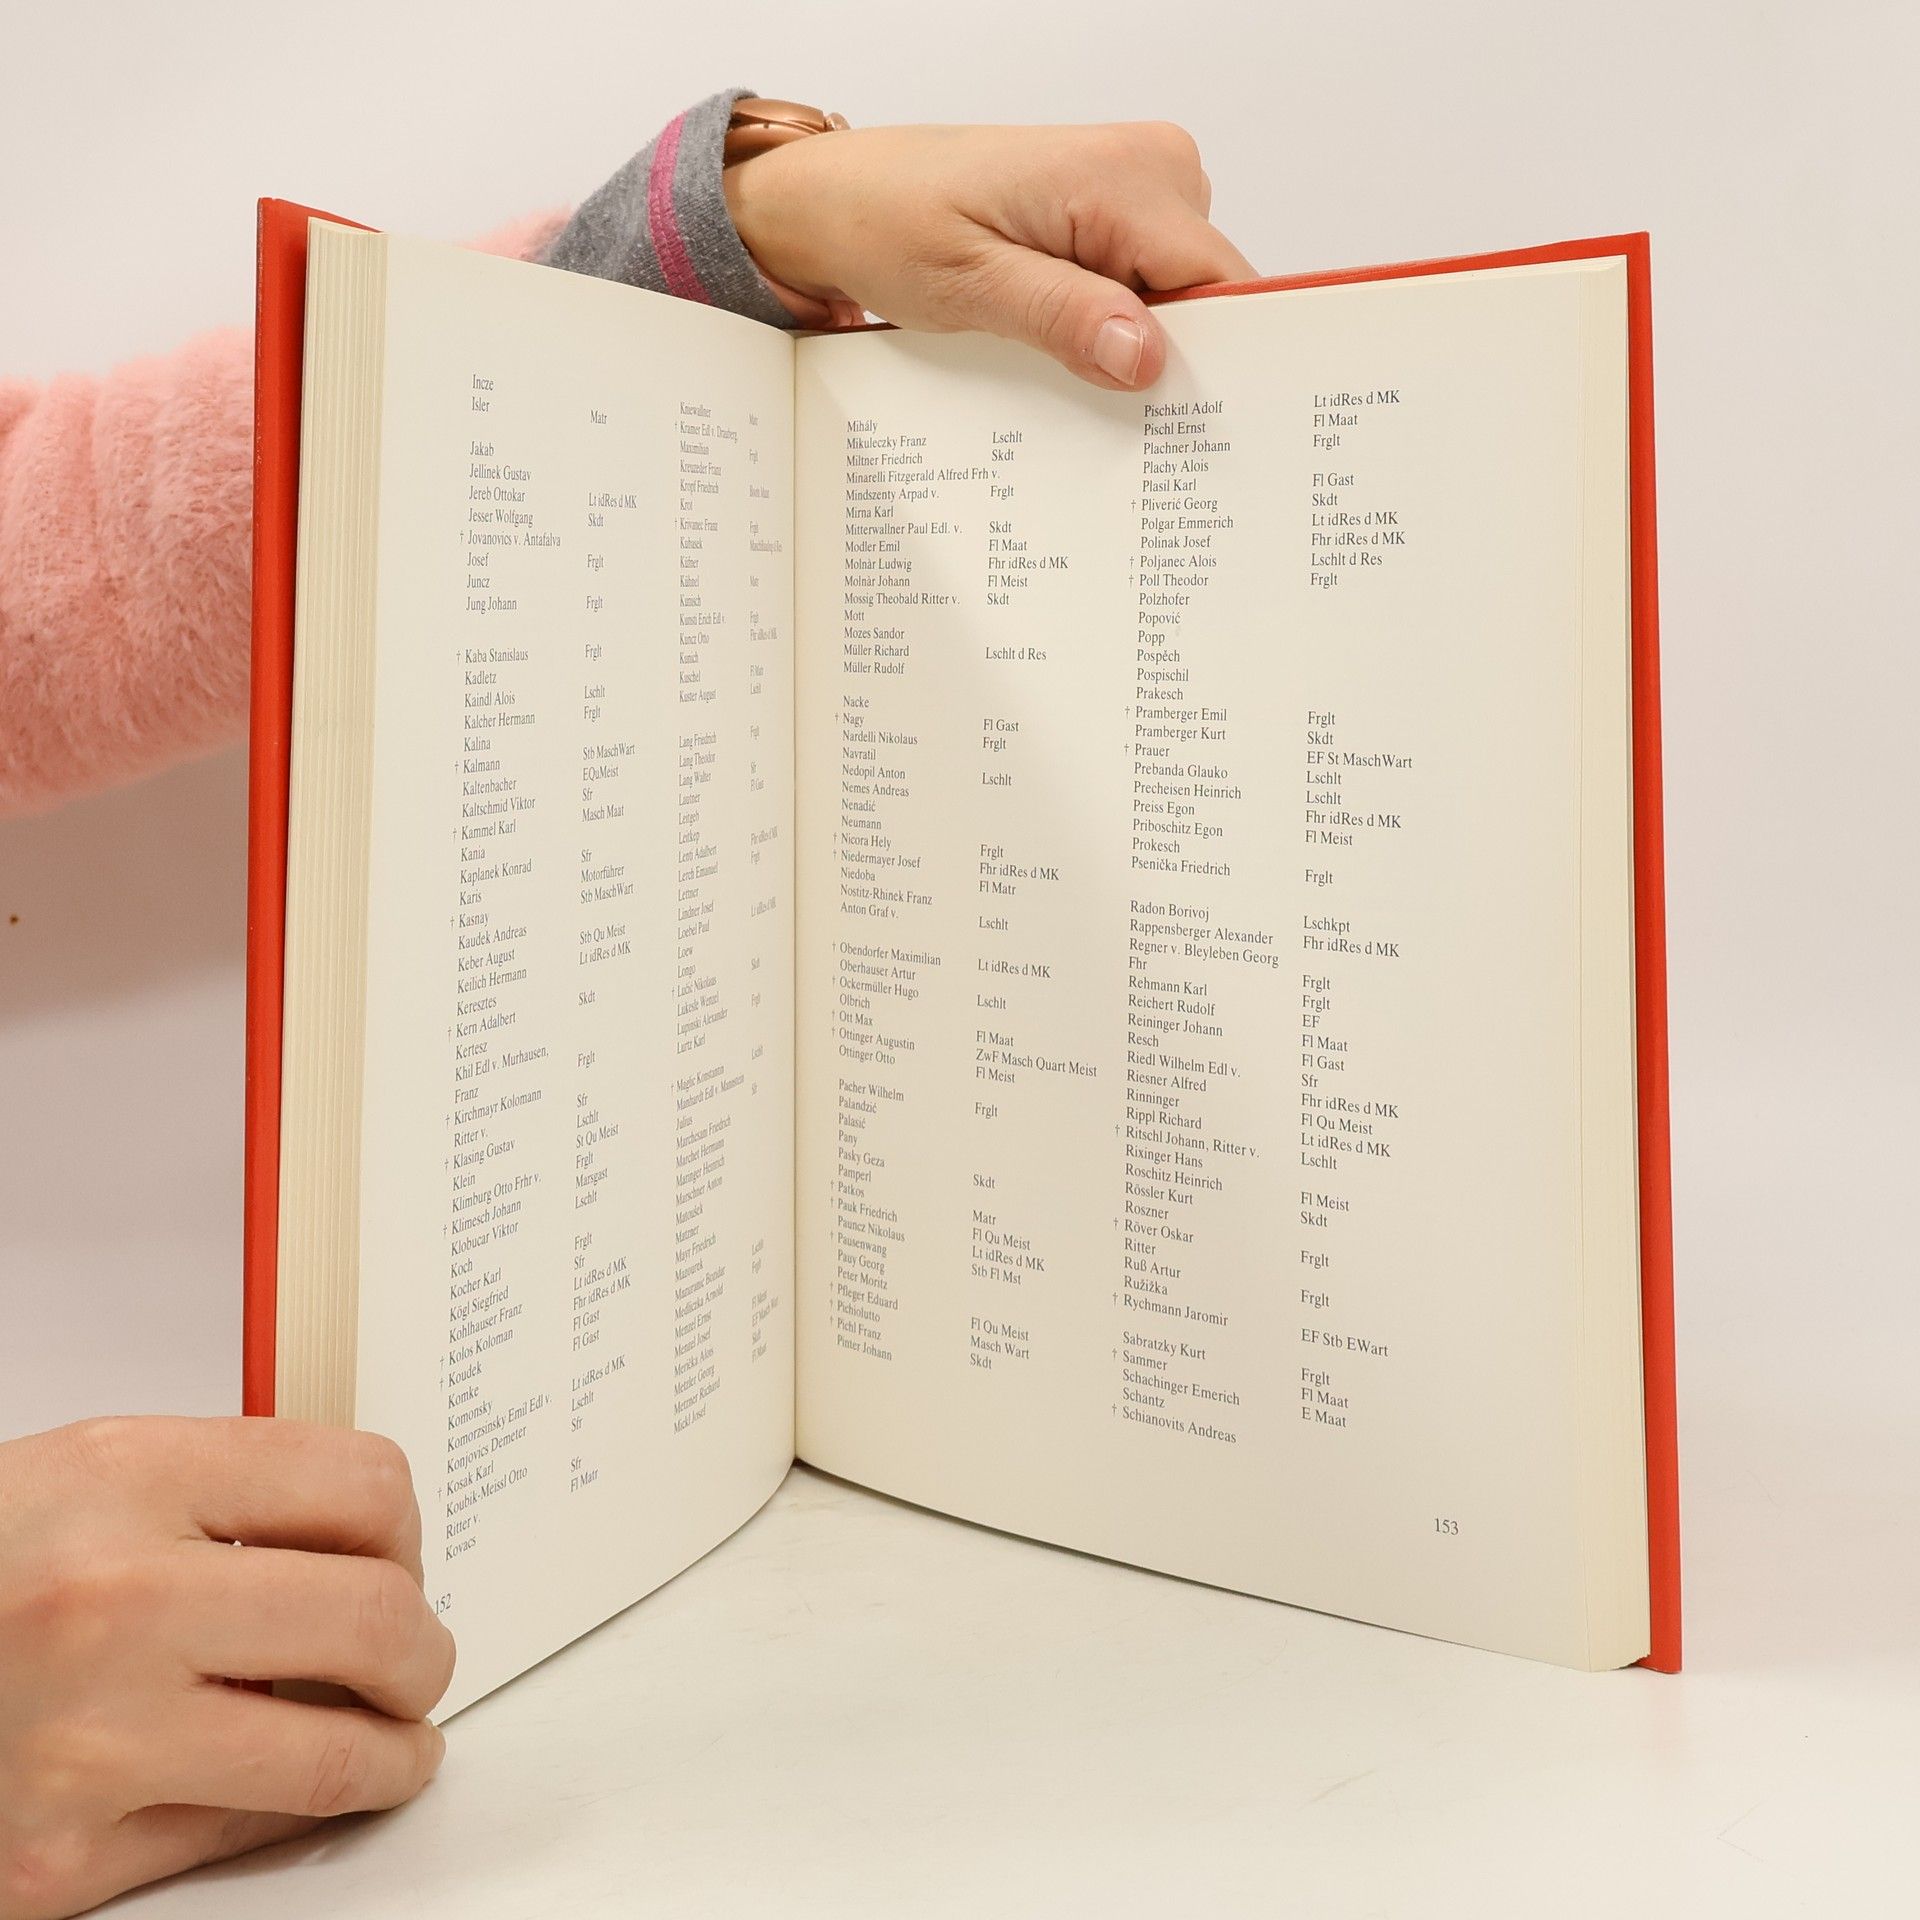 Incze
Isler Matr
Jakab
Jellinek Gustav
Jereb Ottokar Lt idRes d MK
Jesser Wolfgang Skdt
† Jovanovics v. Antafalva
Josef Frglt
Juncz
Jung Johann Frglt
† Kaba Stanislaus Frglt
Kadletz
Kaindl Alois Lschlt
Kalcher Hermann Frglt
Kalina
† Kalmann Stb MaschWart
Kaltenbacher EQuMeist
Kaltschmid Viktor Sfr
† Kammel Karl Masch Maat
Kania
Kaplanek Konrad Sfr
Karis Motorführer
† Kasnay Stb MaschWart
Kaudek Andreas
Keber August Stb Qu Meist
Keilich Hermann Lt idRes d MK
Keresztes
† Kern Adalbert Skdt
Kertesz
Khil Edl v. Murhausen,
Franz Frglt
† Kirchmayr Kolomann
Ritter v. Sfr
† Klasing Gustav Lschlt
Klein St Qu Meist
Klimburg Otto Frhr v. Frglt
† Klimesch Johann Marsgast
Klobucar Viktor Lschlt
Koch
Kocher Karl Frglt
Kögl Siegfried Sfr
Kohlhauser Franz Lt idRes d MK
† Kolos Koloman Fhr idRes d MK
† Koudek Fl Gast
Komke Fl Gast
Komonsky
Komorzsinsky Emil Edl v. Lt idRes d MK
Konjovics Demeter Lschlt
† Kosak Karl Sfr
Koubik-Meissl Otto
Ritter v. Sfr
Kovacs Fl Matr
152
Kmewallner Matr
† Kramer Edl v. Drauberg,
Maximilian Frglt
Kreuzeder Franz
Kropf Friedrich
Krot
† Krivanec Franz Frglt
Kubasek
Küfner
Kühnel Matr
Kunisch
Kunsti Erich Edl v. Frglt
Kuncz Otto Fhr idRes d MK
Kunich
Kuschel Fl Matr
Kuster August Lschlt
Lang Friedrich Frglt
Lang Theodor
Lang Walter Sfr
Lautner Fl Gast
Leitgeb
Leitkep
Lenti Adalbert Fhr idRes d MK
Lerch Emanuel Frglt
Lettner
Lindner Josef
Loebel Paul Lt idRes d MK
Loew
Longo
† Lučić Nikolaus Skdt
Lukesle Wenzel
Lupinski Alexander Frglt
Lurtz Karl
† Maglic Konstantin Lschlt
Manhardt Edl v. Mannstein
Julius Sfr
Marchesani Friedrich
Marchet Hermann
Maringer Heinrich
Marschner Anton
Matoušek
Matzner
Mayr Friedrich
Mazourek Lschlt
Mazuranic Bozidar Frglt
Medliczka Arnold
Menzel Ernst Fl Maat
Menzel Josef EF Masch Wart
Merička Alois Skdt
Metzler Georg Fl Maat
Metzner Richard
Mickl Josef
Mihály
Mikuleczky Franz Lschlt
Miltner Friedrich Skdt
Minarelli Fitzgerald Alfred Frh v.
Mindszenty Arpad v. Frglt
Mirna Karl
Mitterwallner Paul Edl. v. Skdt
Modler Emil Fl Maat
Molnàr Ludwig Fhr idRes d MK
Molnàr Johann Fl Meist
Mossig Theobald Ritter v. Skdt
Mott
Mozes Sandor
Müller Richard Lschlt d Res
Müller Rudolf
Nacke
† Nagy Fl Gast
Nardelli Nikolaus Frglt
Navratil
Nedopil Anton Lschlt
Nemes Andreas
Nenadić
Neumann
† Nicora Hely Frglt
† Niedermayer Josef Fhr idRes d MK
Niedoba Fl Matr
Nostitz-Rhinek Franz
Anton Graf v. Lschlt
† Obendorfer Maximilian
Oberhauser Artur Lt idRes d MK
† Ockermüller Hugo
Olbrich Lschlt
† Ott Max
† Ottinger Augustin Fl Maat
Ottinger Otto ZwF Masch Quart Meist
Fl Meist
Pacher Wilhelm
Palandzić Frglt
Palasić
Pany
Pasky Geza
Pamperl Skdt
† Patkos
† Pauk Friedrich Matr
Pauncz Nikolaus Fl Qu Meist
† Pausenwang Lt idRes d MK
Pauy Georg Stb Fl Mst
Peter Moritz
† Pfleger Eduard
† Pichiolutto Fl Qu Meist
† Pichl Franz Masch Wart
Pinter Johann Skdt
Pischkitl Adolf Lt idRes d MK
Pischl Ernst Fl Maat
Plachner Johann Frglt
Plachy Alois
Plasil Karl Fl Gast
† Pliverić Georg Skdt
Polgar Emmerich Lt idRes d MK
Polinak Josef Fhr idRes d MK
† Poljanec Alois Lschlt d Res
† Poll Theodor Frglt
Polzhofer
Popović
Popp
Pospěch
Pospischil
Prakesch
† Pramberger Emil Frglt
Pramberger Kurt Skdt
† Prauer EF St MaschWart
Prebanda Glauko Lschlt
Precheisen Heinrich Lschlt
Preiss Egon Fhr idRes d MK
Priboschitz Egon Fl Meist
Prokesch
Psenička Friedrich Frglt
Radon Borivoj Lschkpt
Rappensberger Alexander Fhr idRes d MK
Regner v. Bleyleben Georg
Fhr Frglt
Rehmann Karl Frglt
Reichert Rudolf EF
Reininger Johann Fl Maat
Resch Fl Gast
Riedl Wilhelm Edl v. Sfr
Riesner Alfred Fhr idRes d MK
Rinninger Fl Qu Meist
Rippl Richard Lt idRes d MK
† Ritschl Johann, Ritter v. Lschlt
Rixinger Hans
Roschitz Heinrich Fl Meist
Rössler Kurt Skdt
Roszner
† Röver Oskar Frglt
Ritter
Ruß Artur Frglt
Ružižka
† Rychmann Jaromir EF Stb EWart
Sabratzky Kurt Frglt
† Sammer Fl Maat
Schachinger Emerich E Maat
Schantz
† Schianovits Andreas
153